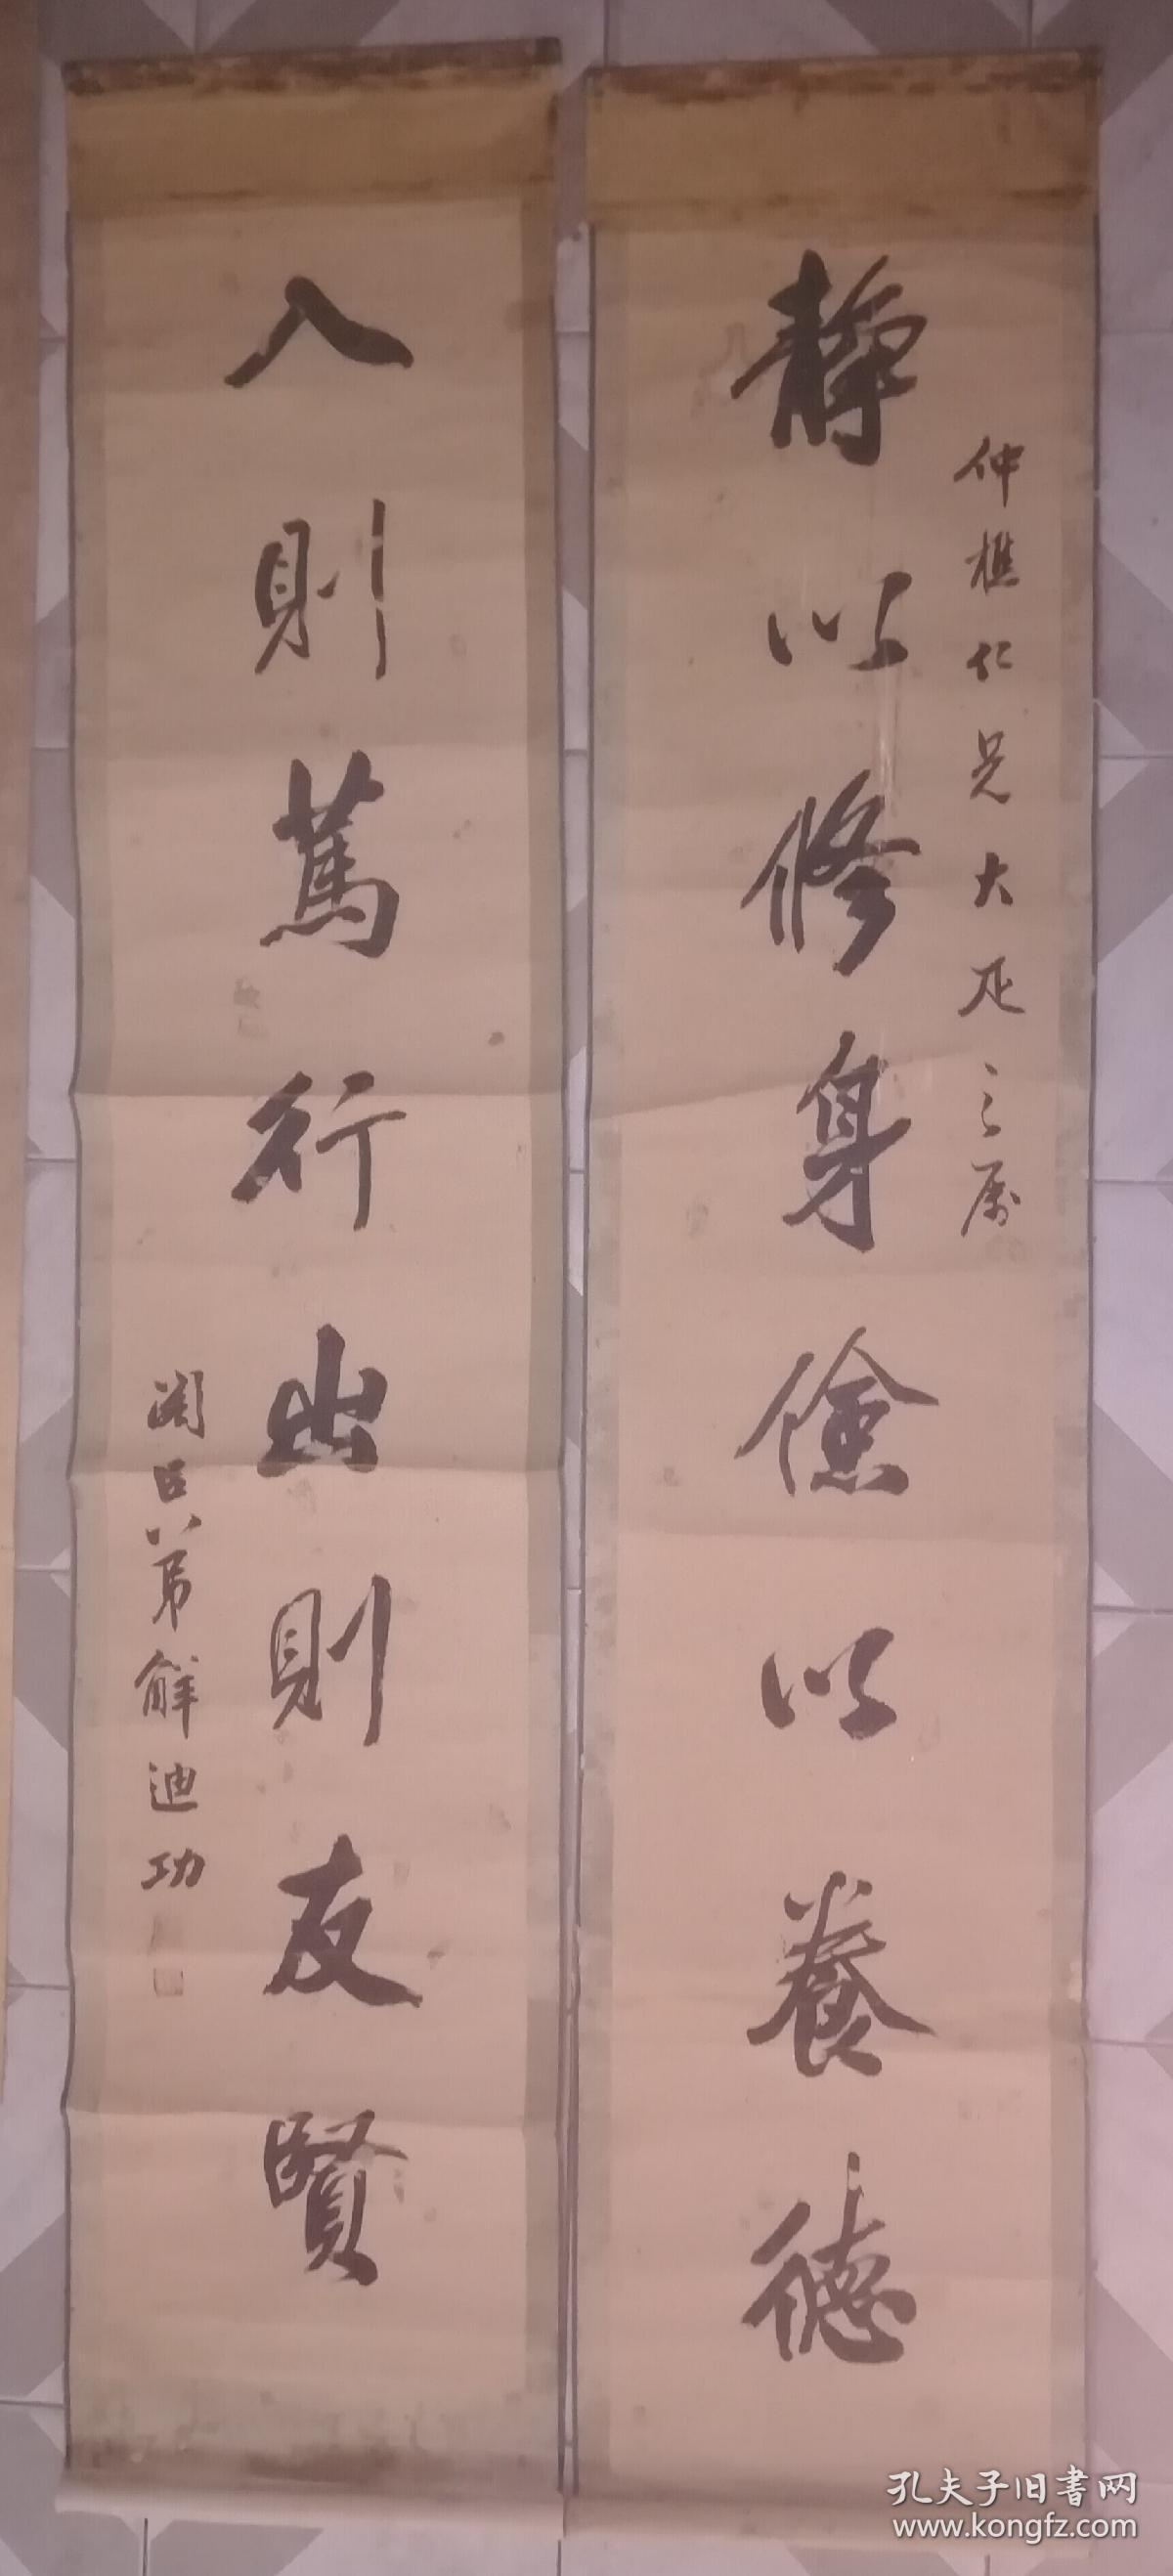 仲樵仁兄大疋之属
静以修身儉以養德
入則篤行出則友賢
弟解迪功
孔夫子旧書网
www.kongfz.com